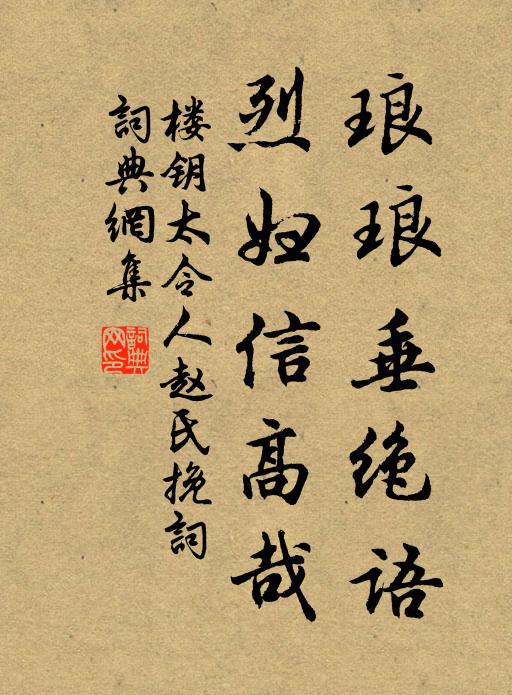 琅琅垂绝语
烈妇信高哉
楼钥太令人赵氏挽詞
詞典網集
詞典网印